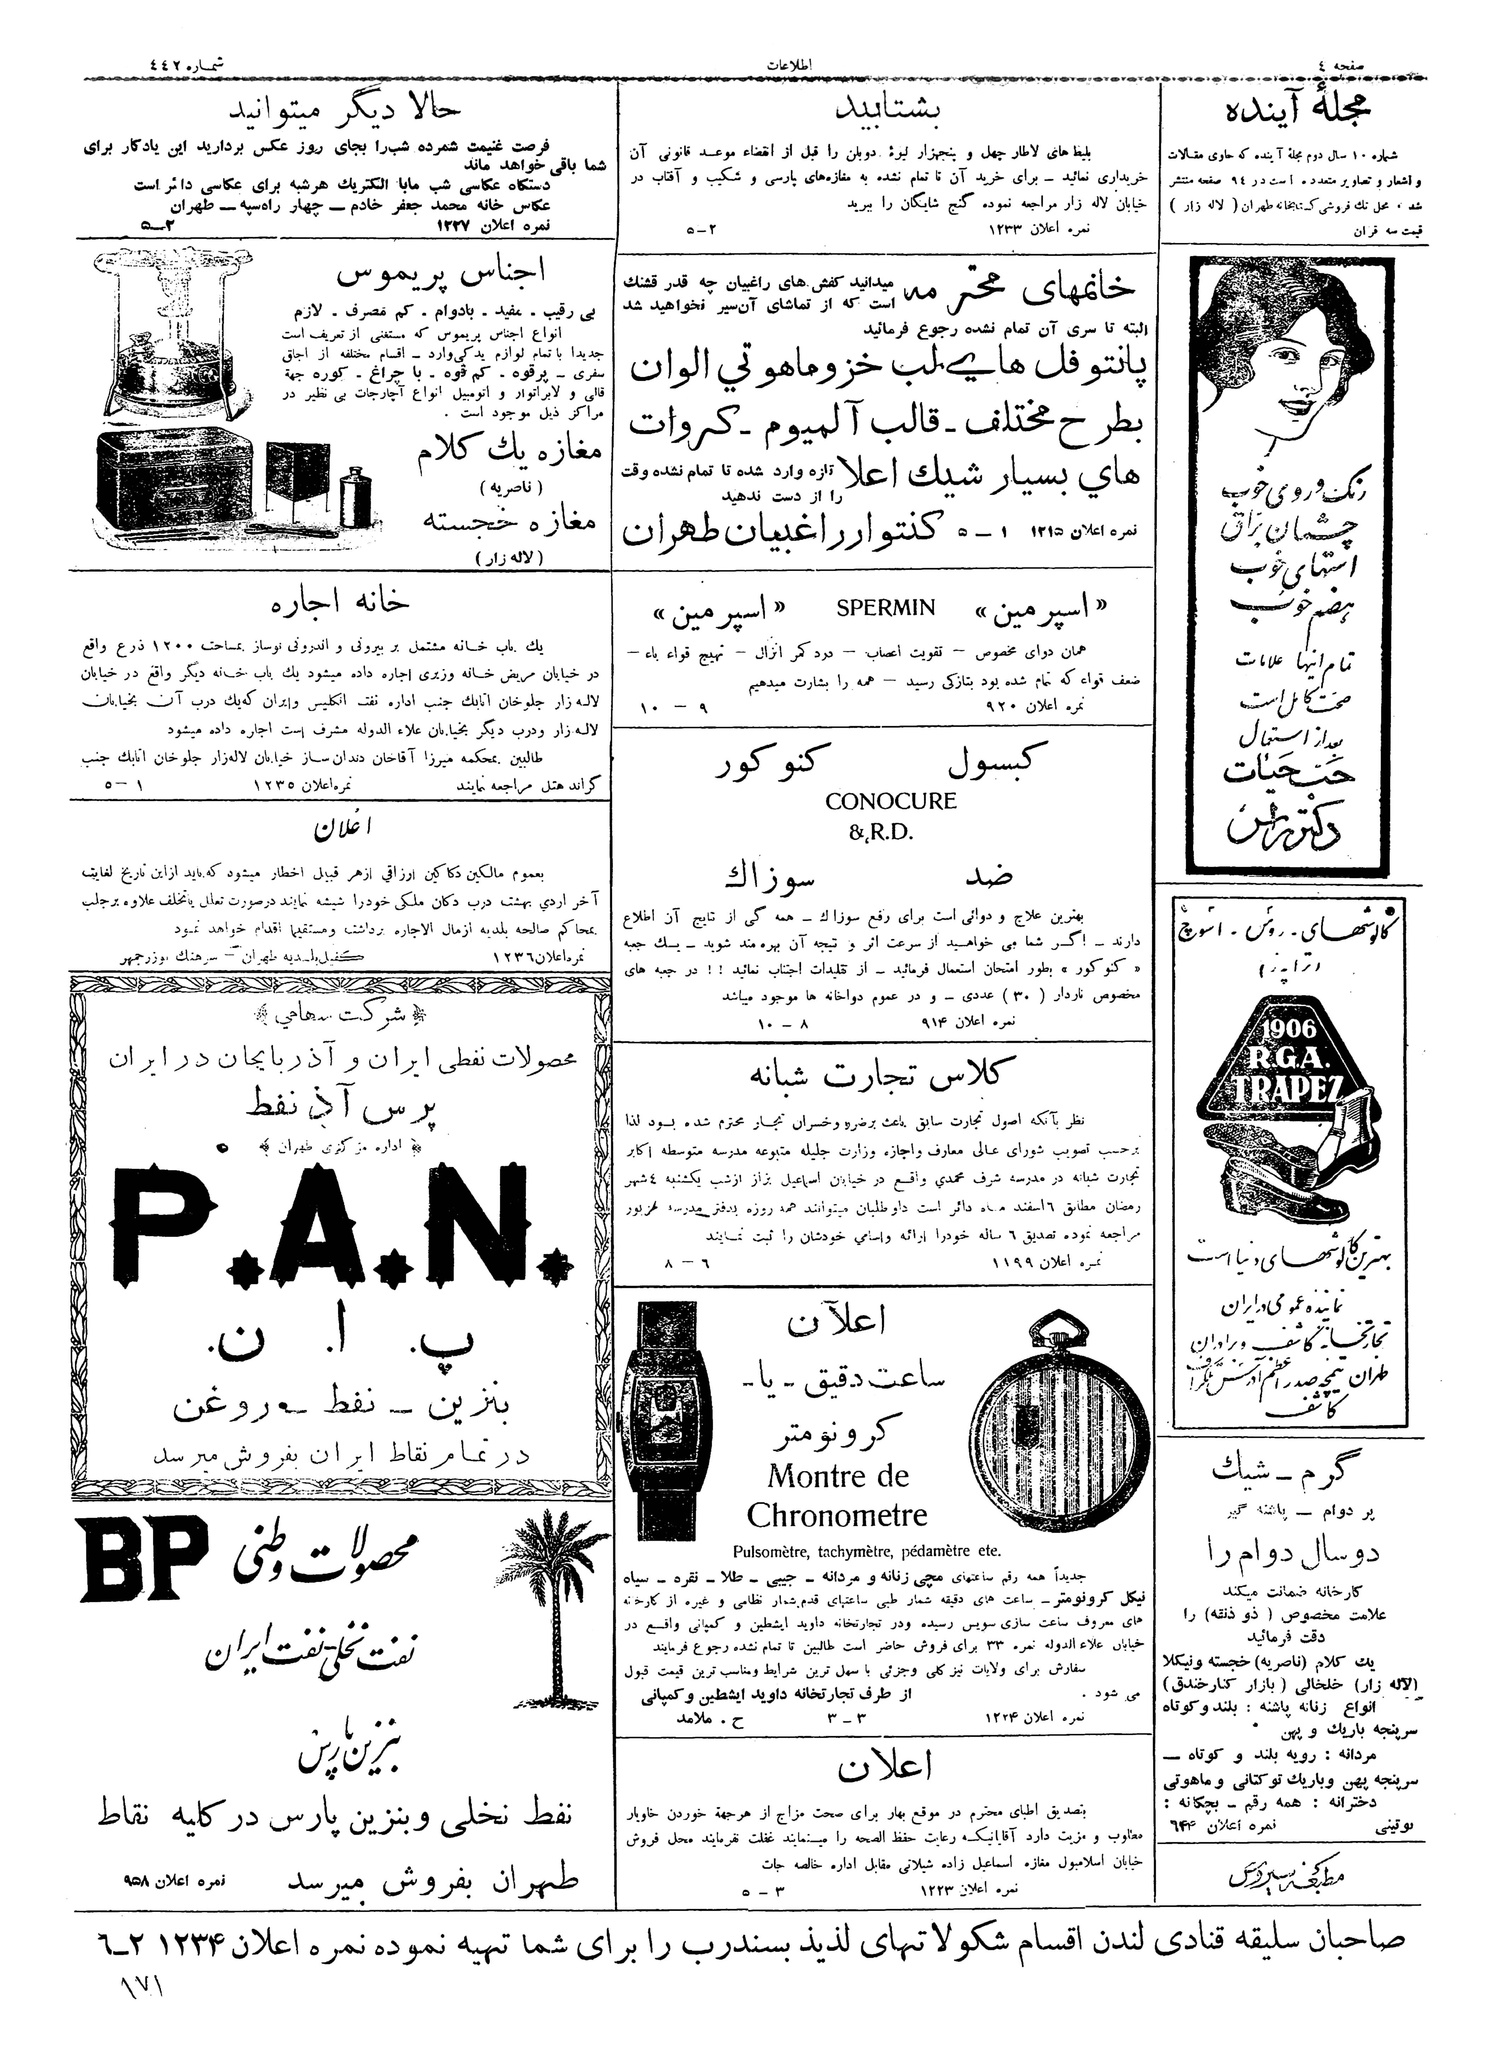 صفحه ٤
اطلاعات
شماره ٤٤٢
مجلهٔ آینده
شماره ١٠ سال دوم مجلهٔ آینده که حاوی مقالات
و اشعار و تصاویر متعدده است در ٩٤ صفحه منتشر
شد ، محل تک فروشی کتابخانه طهران ( لاله زار )
قیمت سه قران
رنگ و روی خوب
چشمان براق
اشتهای خوب
هضم خوب
تمام اینها علامات
صحت کامل است
بعد از استعمال
حب حیات
دکتر راس
گالوشهای - روسی - اسوج
تراپز
1906
R.G.A.
TRAPEZ
بهترین گالوشهای دنیا است
نماینده عمومی در ایران
تجارتخانه کاشف و برادران
طهران تیمچه صدر اعظم آدرس تلگرافی
کاشف
گرم ــ شیک
پر دوام ــ پاشنه گیر
دو سال دوام را
کارخانه ضمانت میکند
علامت مخصوص ( ذو ذنقه) را
دقت فرمائید
یک کلام (ناصریه) خجسته و نیکلا
(لاله زار) خلخالی ( بازار کنارخندق)
انواع زنانه پاشنه : بلند و کوتاه
سرپنجه باریک و پهن
مردانه : رویه بلند و کوتاه ــ
سرپنجه پهن و باریک توکتانی و ماهوتی
دخترانه : همه رقم ــ بچکانه :
نمره اعلان ٦٤٤
مطبعه سیروس
بشتابید
بلیط های لاطار چهل و پنجهزار لیرهٔ دوبلن را قبل از انقضاء موعد قانونی آن
خریداری نمائید ــ برای خرید آن تا تمام نشده به مغازه‌های پارسی و شکیب و آفتاب در
خیابان لاله زار مراجعه نموده گنج شایگان را ببرید
نمره اعلان ١٢٣٣ ٢ــ٥
خانمهای محترمه میدانید کفش های راغبیان چه قدر قشنگ
است که از تماشای آن‌سیر نخواهید شد
البته تا سری آن تمام نشده رجوع فرمائید
پانتوفل هایی لب خز و ماهوتی الوان
بطرح مختلف ــ قالب آلمیوم ــ کروات
های بسیار شیک اعلا تازه وارد شده تا تمام نشده وقت
را از دست ندهید
نمره اعلان ١٢١٥ ١ ــ ٥ کنتوار راغبیان طهران
«اسپرمین» SPERMIN «اسپرمین»
همان دوای مخصوص ــ تقویت اعصاب ــ درد کمر انزال ــ تهییج قواء باء ــ
ضعف قواء که تمام شده بود بتازکی رسید ــ همه را بشارت میدهیم
نمره اعلان ٩٢٠ ٩ ــ ١٠
کبسول کنوکور
CONOCURE
& R.D.
ضد سوزاک
بهترین علاج و دوائی است برای رفع سوزاک ــ همه کی از نتایج آن اطلاع
دارند ــ اگر شما می خواهید از سرعت اثر و نتیجه آن بهره مند شوید ــ یک جعبه
« کنوکور » بطور امتحان استعمال فرمائید ــ از تقلیدات اجتناب نمائید !! در جعبه های
مخصوص ناردار ( ٣٠ ) عددی ــ و در عموم دواخانه ها موجود میباشد
نمره اعلان ٩١٤ ٨ ــ ١٠
کلاس تجارت شبانه
نظر بآنکه اصول تجارت سابق باعث بر ضرر و خسران تجار محترم شده بود لذا
برحسب تصویب شورای عالی معارف و اجازه وزارت جلیله متبوعه مدرسه متوسطه اکابر
تجارت شبانه در مدرسه شرف محمدی واقع در خیابان اسماعیل بزاز از شب یکشنبه ٤ شهر
رمضان مطابق ٦ اسفند ماه دائر است داوطلبان میتوانند همه روزه بدفتر مدرسه مزبور
مراجعه نموده تصدیق ٦ ساله خودرا ارائه و اسامی خودشان را ثبت نمایند
نمره اعلان ١١٩٩ ٦ ــ ٨
اعلان
ساعت دقیق ــ یا ــ
کرونومتر
Montre de
Chronometre
Pulsomètre, tachymètre, pédamètre ete.
جدیداً همه رقم ساعتهای مچی زنانه و مردانه ــ جیبی ــ طلا ــ نقره ــ سیاه
نیکل کرونومتر ــ ساعت های دقیقه شمار طبی ساعتهای قدم‌شمار نظامی و غیره از کارخانه
های معروف ساعت سازی سویس رسیده ودر تجارتخانه داوید ایشطین و کمپانی واقع در
خیابان علاء الدوله نمره ٣٣ برای فروش حاضر است طالبین تا تمام نشده رجوع فرمایند
سفارش برای ولایات نیز کلی و جزئی با سهل ترین شرایط و مناسب ترین قیمت قبول
می شود . از طرف تجارتخانه داوید ایشطین و کمپانی
نمره اعلان ١٢٢٤ ٣ ــ ٣ ح . ملامد
اعلان
بتصدیق اطبای محترم در موقع بهار برای صحت مزاج از هرجهة خوردن خاویار
مطلوب و مزیت دارد آقایانیکه رعایت حفظ الصحه را مینمایند غفلت نفرمایند محل فروش
خیابان اسلامبول مغازه اسماعیل زاده شیلاتی مقابل اداره خالصه جات
نمره اعلان ١٢٢٣ ٣ ــ ٥
حالا دیگر میتوانید
فرصت غنیمت شمرده شب‌را بجای روز عکس بردارید این یادکار برای
شما باقی خواهد ماند
دستکاه عکاسی شب مابا الکتریک هرشبه برای عکاسی دائر است
عکاس خانه محمد جعفر خادم ــ چهار راه‌سپه ــ طهران
نمره اعلان ١٢٢٧ ٢ــ٥
اجناس پریموس
بی رقیب ــ مفید ــ بادوام ــ کم مصرف ــ لازم
انواع اجناس پریموس که مستغنی از تعریف است
جدیدا با تمام لوازم یدکی وارد ــ اقسام مختلفه از اجاق
سفری ــ پرقوه ــ کم قوه ــ با چراغ ــ کوره جهة
قالی و لابراتوار و اتومبیل انواع آچارجات بی نظیر در
مراکز ذیل موجود است .
مغازه یک کلام
( ناصریه )
مغازه خجسته
( لاله زار )
خانه اجاره
یک باب خانه مشتمل بر بیرونی و اندرونی نوساز بمساحت ١٢٠٠ ذرع واقع
در خیابان مریض خانه وزیری اجاره داده میشود یک باب خانه دیگر واقع در خیابان
لاله زار جلوخان اتابک جنب اداره نفت انکلیس و ایران که یک درب آن بخیابان
لاله زار ودرب دیگر بخیابان علاء الدوله مشرف است اجاره داده میشود
طالبین بمحکمه میرزا آقاخان دندان ساز خیابان لاله‌زار جلوخان اتابک جنب
گراند هتل مراجعه نمایند نمره اعلان ١٢٣٥ ١ ــ٥
اعلان
بعموم مالکین دکاکین ارزاقی از هر قبیل اخطار میشود که باید ازاین تاریخ لغایت
آخر اردی بهشت درب دکان ملکی خودرا شیشه نمایند درصورت تعلل یا تخلف علاوه بر جلب
بمحاکم صالحه بلدیه ازمال الاجاره برداشت ومستقیما اقدام خواهد نمود
نمره اعلان ١٢٣٦ کفیل بلدیه طهران ــ سرهنک بوذرجمهر
شرکت سهامی
محصولات نفطی ایران و آذربایجان در ایران
پرس آذ نفط
اداره مرکزی طهران
P.A.N.
پ. ا. ن.
بنزین ــ نفط ــ روغن
در تمام نقاط ایران بفروش میرسد
BP
محصولات وطنی
نفت نخلی - نفت ایران
بنزین پارس
نفط نخلی و بنزین پارس در کلیه نقاط
طهران بفروش میرسد نمره اعلان ٩٥٨
صاحبان سلیقه قنادی لندن اقسام شکولاتهای لذیذ بسندرب را برای شما تهیه نموده نمره اعلان ١٢٣٤ ٢ــ٦
١٧١